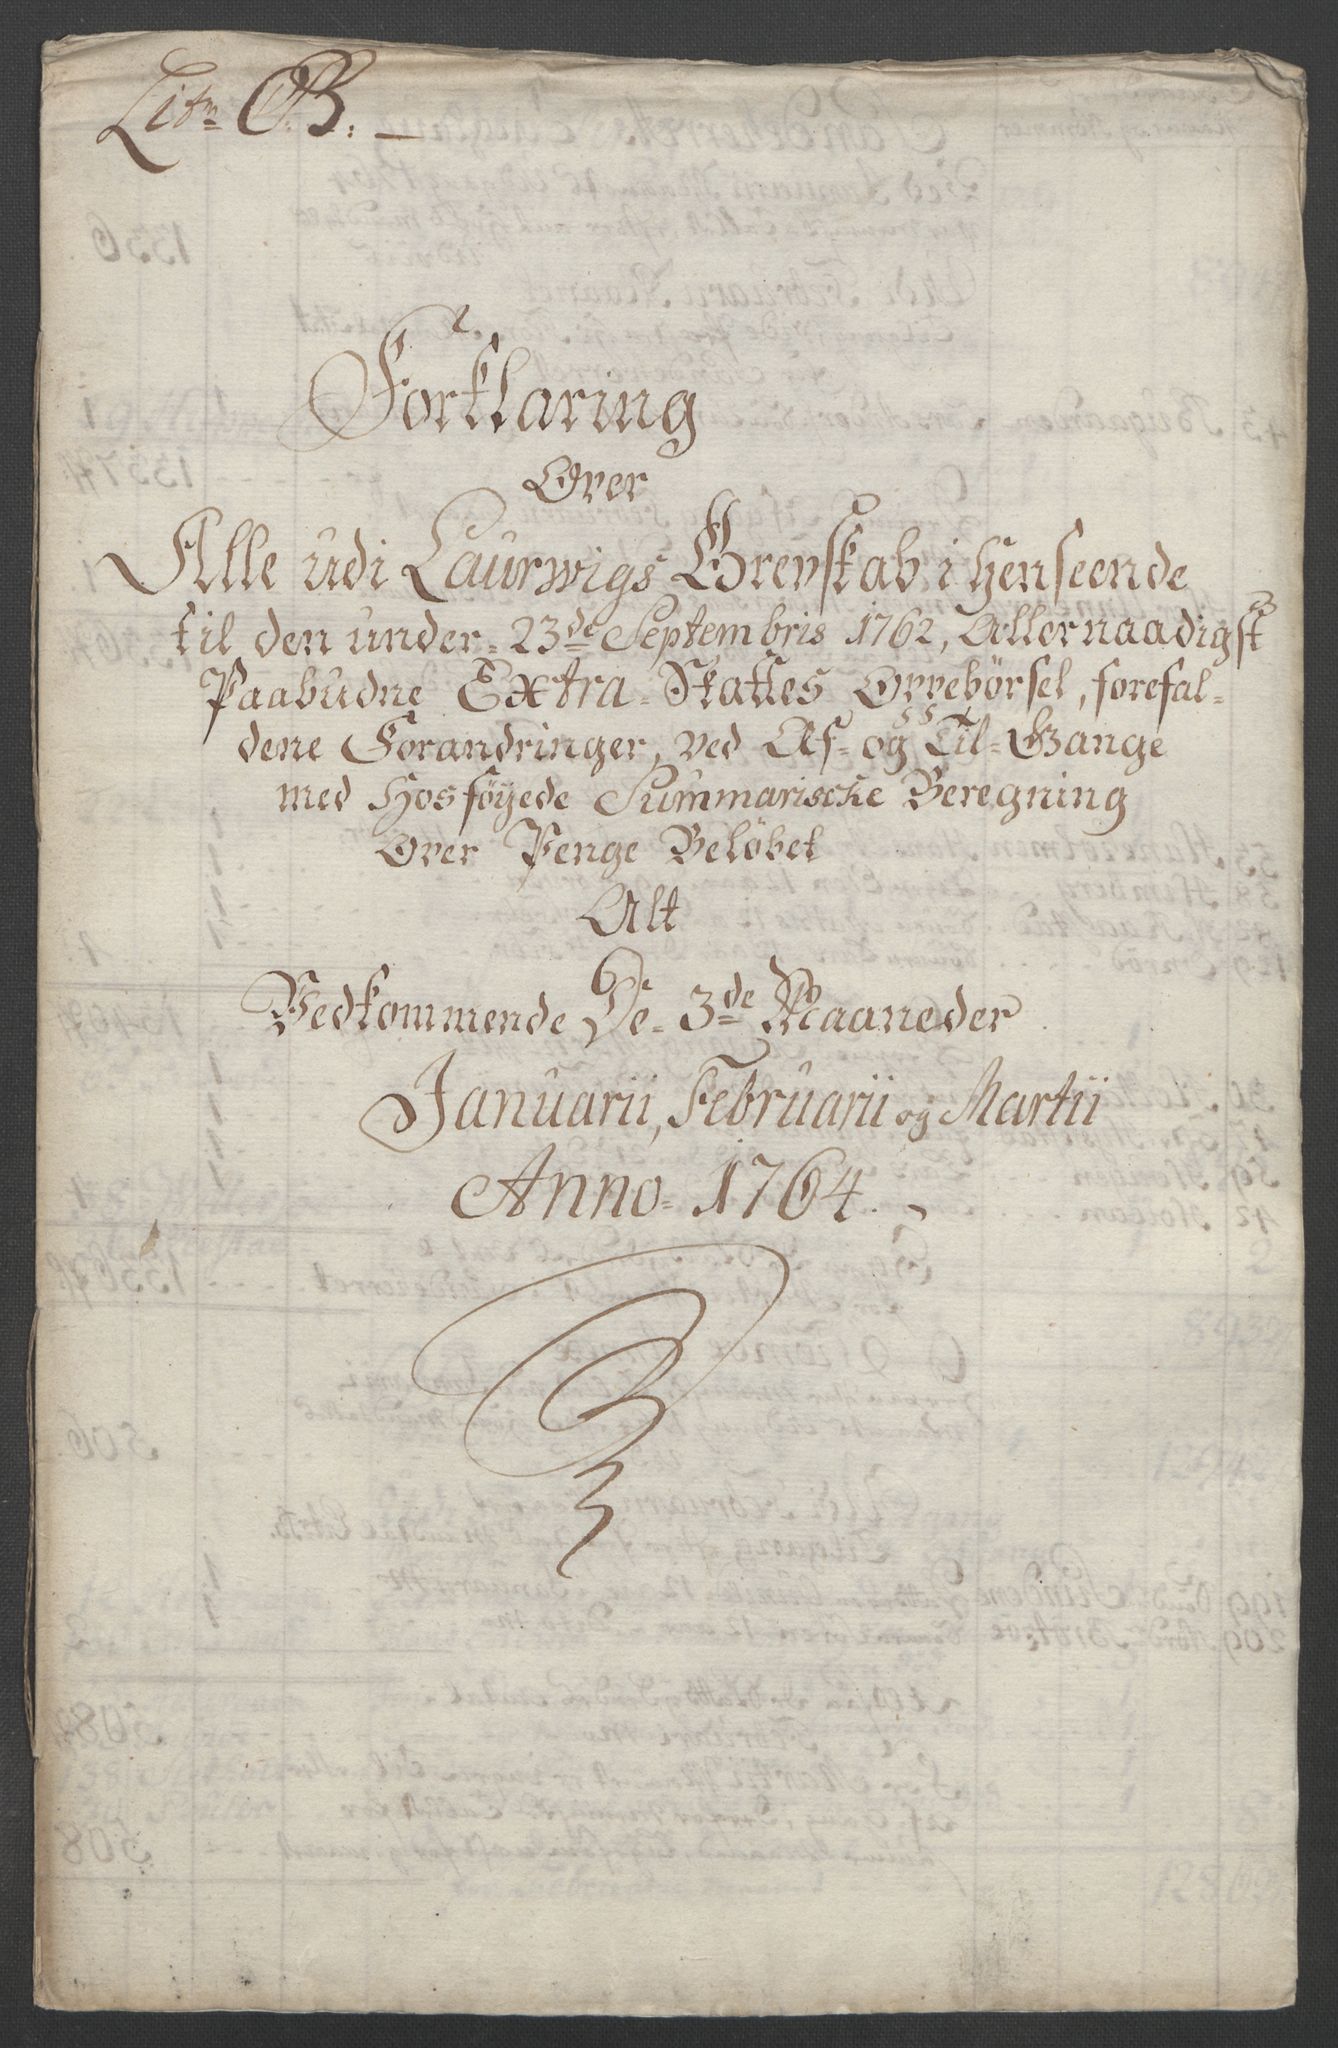 Litr B:
Forklaring
Over
Alle udi Laurwigs Grevskab i henseende
til den under 23de Septembris 1762, Allernaadigst
Paabudne Extra-Skattes Oppebörsel, forefal-
dene Forandringer, ved Af- og Til-Gange
med Hosföyede Summariscke Beregning
Over Penge Belöbet
Alt
Vedkommende De 3de Maaneder
Januarii, Februarii og Martii
Anno 1764.